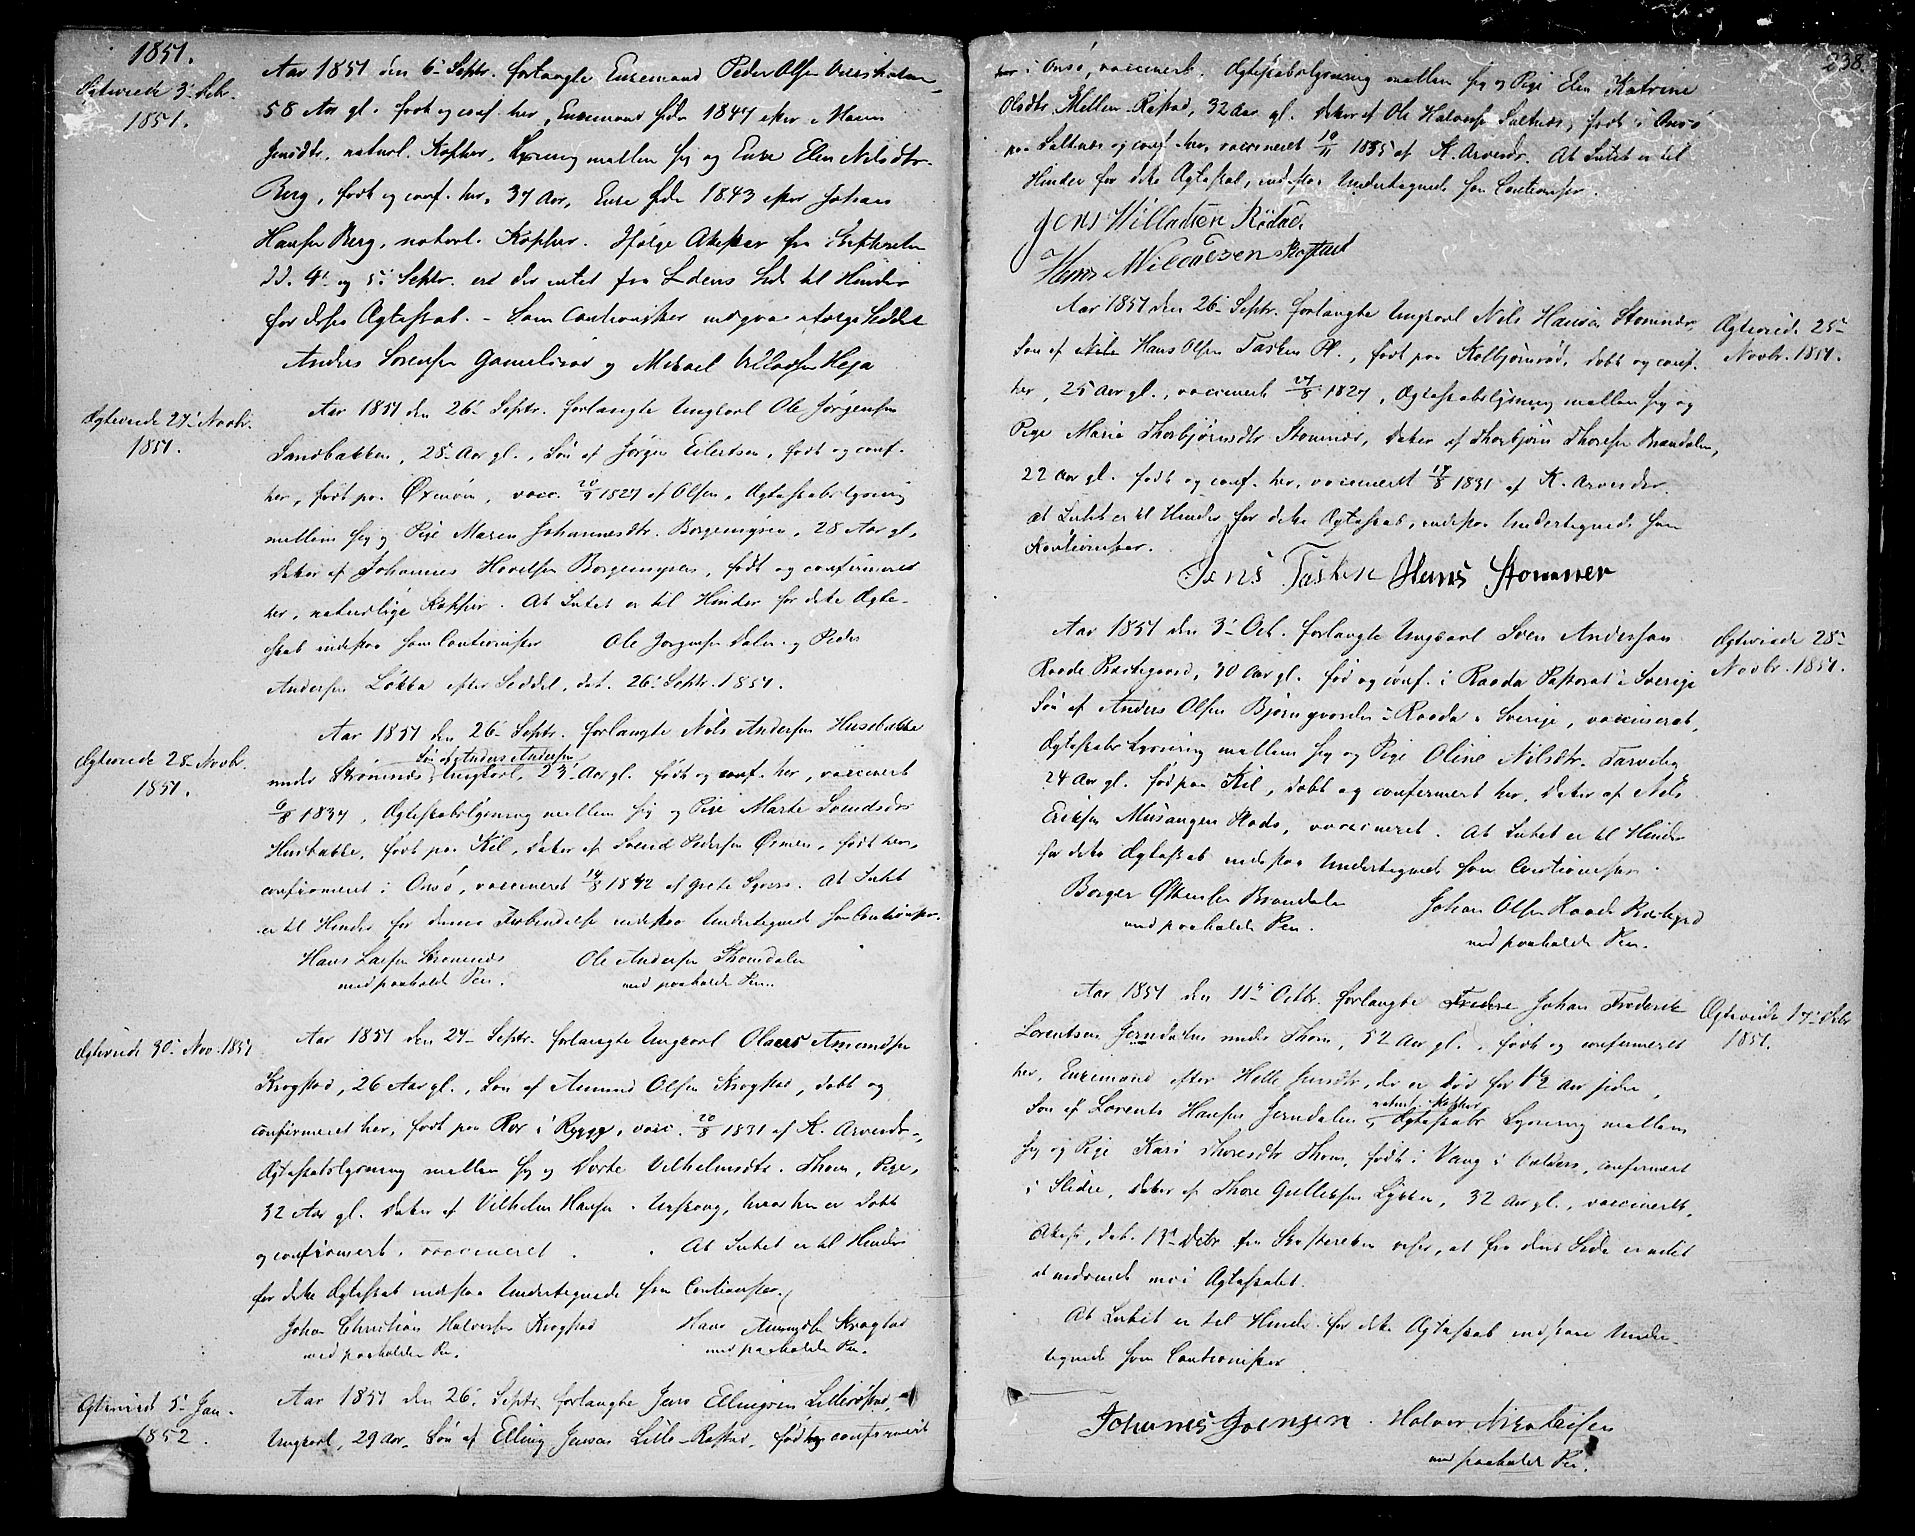 1851.
Ægteviede 3' Debr.
1851.
Aar 1851 den 6' Septr. forlangte Enkemand Peder Olsen
58 Aar gl. født og conf. her, Enkemand siden 1847 efter Maren
Jensdtr., naturl. Kopper, Lysning mellem sig og Enke Elen Nilsdtr.
Berg, født og conf. her, 37 Aar, Enke siden 1843 efter Johan
Hansen Berg, naturl. Kopper. Ifølge Attester fra Skifteretten
dd. 4' og 5' Septr. er der intet fra dens Side til Hinder
for dette Ægteskab. – Som Cautionister indgaar ifølge Seddel
Anders Sørensen Gamelsrød og Mikael Villadsen Heja
Ægteviede 27' Novbr.
1851.
Aar 1851 den 26' Septr. forlangte Ungkarl Ole Jørgensen
Sandbakken, 25 Aar gl., Søn af Jørgen Eilertsen, født og conf.
her, født paa Øxenøen, vacc. 20/9 1827 af Olsen, Ægteskabslysning
mellem sig og Pige Maren Johannesdtr. Borgemyren, 28 Aar gl.,
Datter af Johannes Hovelsen Borgemyren, født og confirmeret
her, naturlige Kopper. At Intet er til Hinder for dette Ægte-
skab indestaa som Cautionister Ole Jørgensen Dalen og Peder
Andersen Løkka efter Seddel, dat. 26' Septr. 1851.
Ægteviede 28' Novbr.
1851.
Aar 1851 den 26' Septr. forlangte Nils Andersen Husebakke
Søn af Anders Andersen
under Strømnes, Ungkarl, 23 Aar gl. født og conf. her, vaccineret
6/8 1837, Ægteskabslysning mellem sig og Pige Marte Svendsdtr
Husbakke, født paa Kil, Datter af Svend Pedersen Øxnen, født her,
confirmeret i Onsø, vaccineret 14/8 1842 af Grete Sgvers. At Intet
er til Hinder for denne Forbindelse indestaa Undertegnede som Cautionister.
Hans Larsen Strømnes
med paaholden Pen.
Ole Andersen Thomdalen
med paaholden Pen.
Ægteviede 30' Nov. 1851
Aar 1851 den 27' Septr. forlangte Ungkarl Olaus Amundsen
Krogstad, 26 Aar gl., Søn af Amund Olsen Krogstad, døbt og
confirmeret her, født paa Ror i Rygge, vacc. 20/8 1831 af K. Arvesdr.,
Ægteskabslysning mellem sig og Dorte Vilhelmsdtr. Thom, Pige,
32 Aar gl. Datter af Vilhelm Hansen i Urskoug, hvor hun er døbt
og confirmeret, vaccineret. At Intet er til Hinder
for dette Ægteskab indestaa Undertegnede som Cautionister.
Johan Christian Halvorsen Krogstad
med paaholden Pen.
Hans Amundsen Krogstad
med paaholden Pen.
Ægteviet 5' Jan.
1852.
Aar 1851 den 26' Septr. forlangte Jens Ellingsen Lillerøstad,
Ungkarl, 29 Aar, Søn af Elling Jensen Lille-Røstad, født og confirmeret
238.
i Onsø, vaccineret, Ægteskabslysning mellem sig og Pige Elen Katrine
Olsdtr. Mellem-Røstad, 32 Aar gl. Datter af Ole Halvorsen Saltnæs, født i Onsø
paa Saltnæs og conf. her, vaccineret 19/11 1835 af K. Arvesdr. At Intet er til
Hinder for dette Ægteskab, indestaa Undertegnede som Cautionister.
Jens Willadsen Rødsd.
Hans Nilsen Røstad
Ægteviede 25'
Novbr. 1851.
Aar 1851 den 26' Septr. forlangte Ungkarl Nils Hansen Stomner,
Søn af Hans Olsen Tasken Pl., født paa Kolbjørnsrød, døbt og conf.
her, 25 Aar gl., vaccineret 27/8 1827, Ægteskabslysning mellem sig og
Pige Maria Thorbjørnsdtr Stomner, Datter af Thorbjørn Thoresen Brandalen,
22 Aar gl. født og conf. her, vaccineret 17/8 1831 af K. Arvesdr.
At Intet er til Hinder for dette Ægteskab, indestaa Undertegnede som
Kautionister.
Jens Tasken Hans Stomner
Ægteviede 28'
Novbr. 1851.
Aar 1851 den 3' Oct. forlangte Ungkarl Sven Andersen
Raade Præstegaard, 30 Aar gl. fød og conf. i Raada Pastorat i Sverige
Søn af Anders Olsen Bjørngaarden i Raada i Sverige, vaccineret,
Ægteskabs Lysning mellem sig og Pige Oline Nilsdtr. Tasveby
24 Aar gl. fød paa Kil, døbt og confirmeret her, Datter af Nils
Eriksen Musangen Plads, vaccineret. At Intet er til Hinder
for dette Ægteskab indestaa Undertegnede som Cautionister.
Borger Østensen Brandalen
med paaholden Pen.
Johan Olsen Raade Præstegrd
med paaholden Pen.
Ægteviede 17' Debr
1851.
Aar 1851 den 11' Octbr. forlangte Johan Frederik
Lorentsen Jerndalen under Thom, 52 Aar gl., født og confirmeret
her, Enkemand efter Helle Jensdtr, der er død for 1 1/2 Aar siden,
naturl. Kopper
Søn af Lorents Hansen Jerndalen, Ægteskabs Lysning mellem
sig og Pige Kari Thoresdtr Thom, født i Vang i Valders, confirmeret
i Slidre, Datter af Thore Gulleksen Lykken, 32 Aar gl., vaccineret,
Attest, dat. 13' Debr fra Skifteretten viser, at fra dens Side er intet
at indvende mod Ægteskabet.
At Intet er til Hinder for dette Ægteskab indstaae Under-
tegnede som Cautionister
Johannes Joensen. Halvor Nikolaisen
med paaholden Pen.